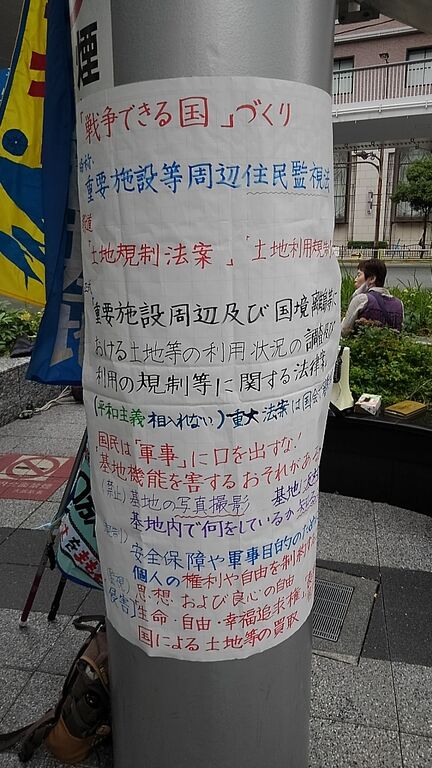 煙
「戦争できる国」づくり
重要施設等周辺住民監視法
「土地規制法案」「土地利用規制
「重要施設周辺及び国境離島等に
おける土地等の利用状況の調査及び
利用の規制等に関する法律案
(平和主義相入れない)重大法案は国会で
国民は「軍事」に口を出すな!
「基地機能を害するおそれがある
(禁止)基地の写真撮影 基地に
基地内で何をしているか
安全保障や軍事目的の
個人の権利や自由を制約
思想および良心の自由
侵害)生命・自由・幸福追求権
国による土地等の買取